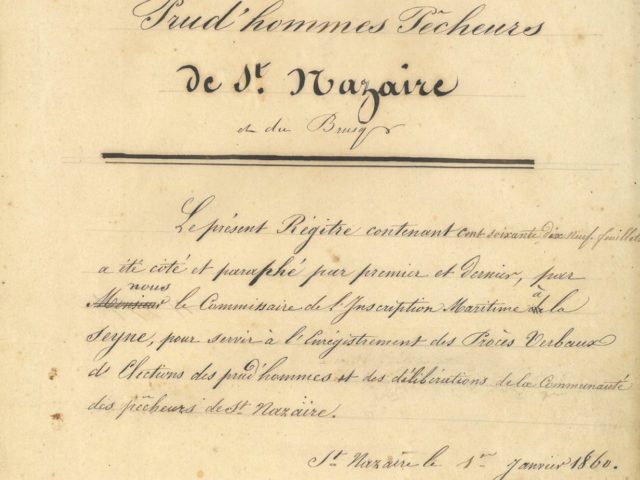 Prud'hommes Pêcheurs
de St. Nazaire
et du Brusq
Le présent Régitre contenant cent soixante dix neuf feuillets
a été coté et paraphé par premier et dernier, par
nous
Monsieur le Commissaire de l'Inscription Maritime à la
Seyne, pour servir à l'Enrégistrement des Procès Verbaux
ds Elections des prud'hommes et des délibérations de la Communauté
des pêcheurs de St Nazaire.
St. Nazaire le 1er Janvier 1860.